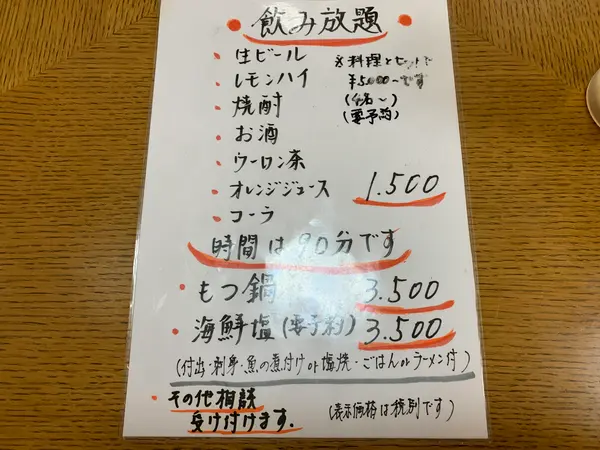 飲み放題
・生ビール
・レモンハイ
・焼酎
・お酒
・ウーロン茶
・オレンジジュース
・コーラ
※料理とセットで
¥5,000~です
(4名~)
(要予約)
1.500
時間は90分です
・もつ鍋 3.500
・海鮮塩(要予約) 3.500
(付出・刺身・魚の煮付けor塩焼・ごはんorラーメン付)
・その他相談
受け付けます.
(表示価格は税別です)